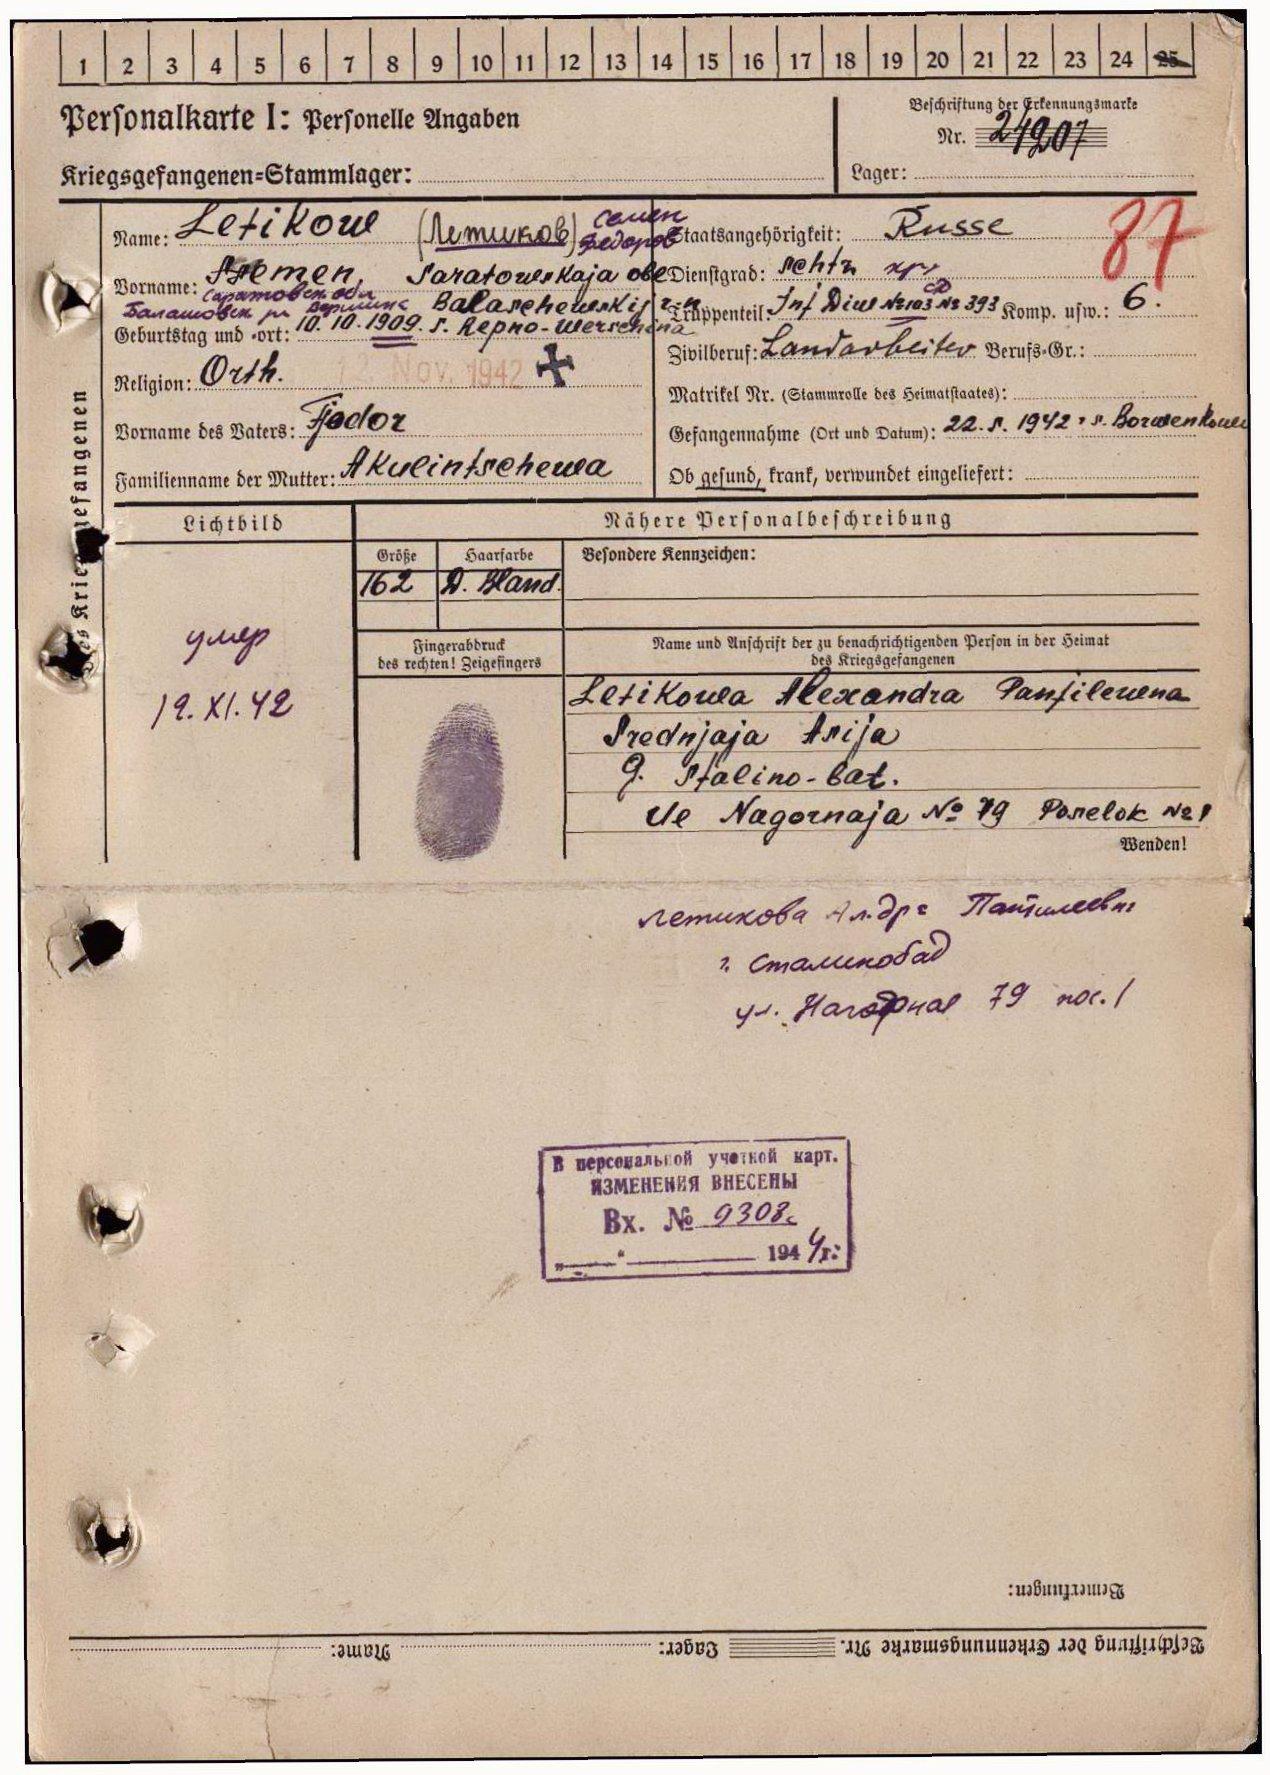 1 2 3 4 5 6 7 8 9 10 11 12 13 14 15 16 17 18 19 20 21 22 23 24 25
Personalkarte I: Personelle Angaben
Kriegsgefangenen=Stammlager:
Beschriftung der Erkennungsmarke
Nr. 24207
Lager:
des Kriegsgefangenen
Name: Letikow (Летиков) Семен Федоров
Vorname: Ssemen, Saratowskaja obl
Саратовск обл
Балашовск р Вершина Balaschewskij r-n
Geburtstag und -ort: 10.10.1909. s. Repno-Werschina
Religion: Orth. 12. Nov. 1942
Vorname des Vaters: Fjodor
Familienname der Mutter: Akulintschewa
Staatsangehörigkeit: Russe
87
Dienstgrad: Schtz кр.
Truppenteil: Inf Diw № 103 СД № 393 Komp. usw.: 6.
Zivilberuf: Landarbeiter Berufs=Gr.:
Matrikel Nr. (Stammrolle des Heimatstaates):
Gefangennahme (Ort und Datum): 22.5.1942, s. Borwenkowo
Ob gesund, krank, verwundet eingeliefert:
Lichtbild
Nähere Personalbeschreibung
Größe Haarfarbe Besondere Kennzeichen:
162 D. Bland.
умер
12.XI.42
Fingerabdruck
des rechten! Zeigefingers
Name und Anschrift der zu benachrichtigenden Person in der Heimat
des Kriegsgefangenen
Letikowa Alexandra Panfilewna
Srednjaja Asija
g. Stalino-bat.
Ul Nagornaja № 79 Poselok № 1
Wenden!
Летикова Ал-дра Панфилевна
г. Сталинобад
ул. Нагорная 79 пос. 1
В персональной учетной карт.
ИЗМЕНЕНИЯ ВНЕСЕНЫ
Вх. № 9308
„ “ 1944 г.
Bemerkungen:
Beschriftung der Erkennungsmarke Nr. Lager: Name: